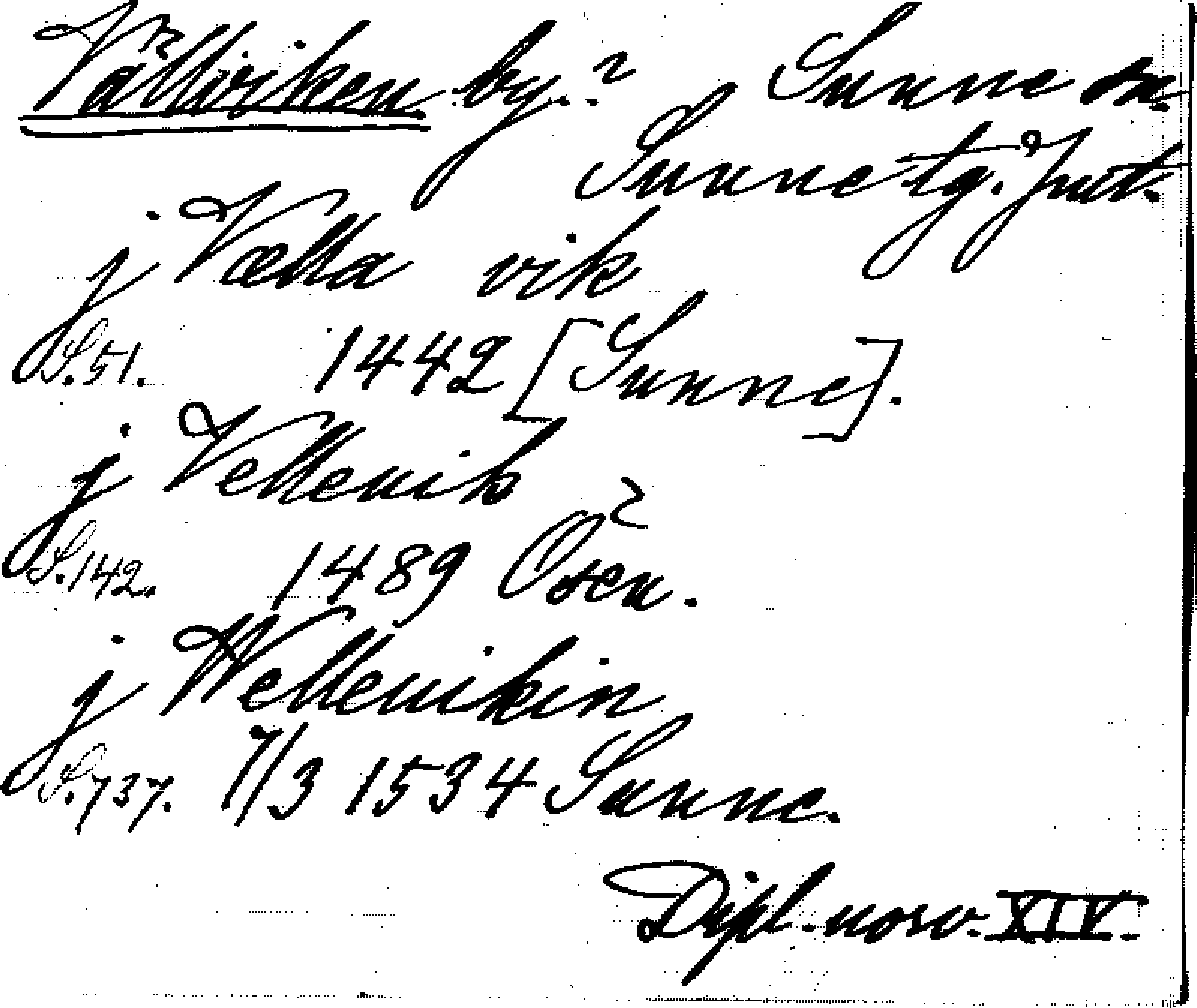 Vällviken by.? Sunne sn.
Sunne tg. Jmt.
j Vælla vik
S. 51. 1442 [Sunne].
j Vellenik
S. 142. 1489 Ösen.
j Wellenikin
S. 737. 7/3 1534 Sunne.
Dipl. norv. XIV.